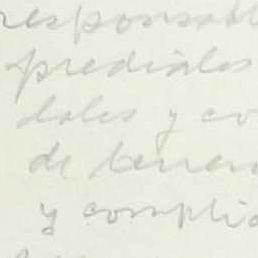 responsabl
prediales
dales y co
de terren
y complia